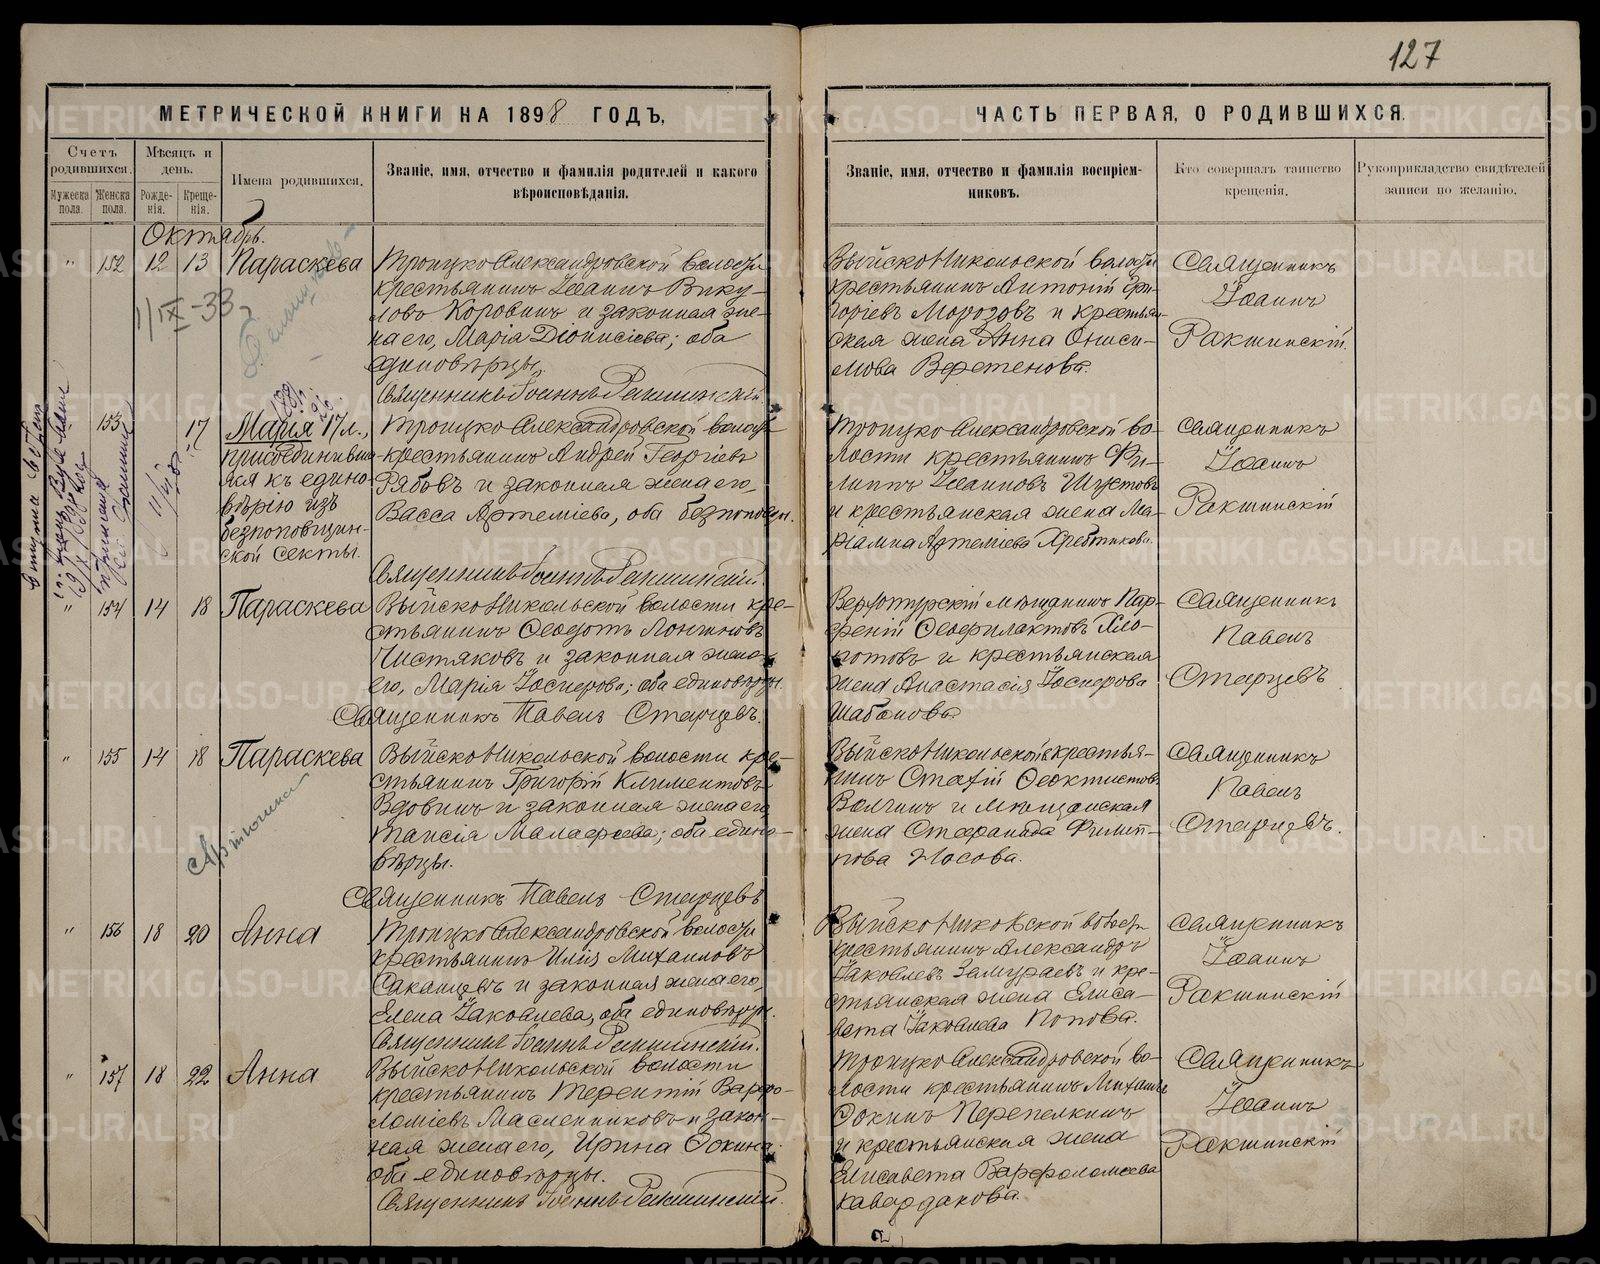 127
МЕТРИЧЕСКОЙ КНИГИ НА 1898 ГОДЪ,
Счетъ родившихся.
Мужеска пола.
Женска пола.
Мѣсяцъ и день.
Рожденія.
Крещенія.
Имена родившихся.
Званіе, имя, отчество и фамилія родителей и какого
вѣроисповѣданія.
ЧАСТЬ ПЕРВАЯ, О РОДИВШИХСЯ.
Званіе, имя, отчество и фамилія воспріем-
никовъ.
Кто совершалъ таинство
крещенія.
Рукоприкладство свидѣтелей
записи по желанію.
Октябрь.
" 152 12 13 Параскева
1/IX-33
Троицко Александровской волости
крестьянинъ Іоаннъ Вику-
ловъ Коровинъ и законная же-
на его, Марія Діонисіева; оба
единовѣрцы.
Священникъ Іоаннъ Ракшинскій
Выйско Никольской волости
крестьянинъ Антоній Гри-
горіевъ Морозовъ и крестьян-
ская жена Анна Ониси-
мова Веретенова.
Священникъ
Іоаннъ
Ракшинскій.
153 17 Марія 17 л.,
присоединивша-
яся къ едино-
вѣрію изъ
безпоповщин-
ской секты.
Троицко Александровской волости
крестьянинъ Андрей Георгіевъ
Рябовъ и законная жена его,
Васса Артеміева, оба безпоповцы.
Священникъ Іоаннъ Ракшинскій.
Троицко Александровской во-
лости крестьянинъ Фи-
липпъ Іоанновъ Шустовъ
и крестьянская жена Ма-
ріамна Артеміева Хребтикова.
Священникъ
Іоаннъ
Ракшинскій
" 154 14 18 Параскева
Выйско Никольской волости кре-
стьянинъ Ѳеодотъ Лонгиновъ
Чистяковъ и законная жена
его, Марія Іосифова; оба единовѣрцы.
Священникъ Павелъ Старцевъ.
Верхотурскій мѣщанинъ Пар-
феній Ѳеофилактовъ Хло-
потовъ и крестьянская
жена Анастасія Іосифова
Шабанова
Священникъ
Павелъ
Старцевъ
" 155 14 18 Параскева
Выйско Никольской волости кре-
стьянинъ Григорій Климентовъ
Вдовинъ и законная жена его
Таисія Малафеева; оба едино-
вѣрцы.
Священникъ Павелъ Старцевъ
Выйско Никольской крестья-
нинъ Стахій Ѳеоктистовъ
Волчинъ и мѣщанская
жена Стефанида Филип-
пова Носова.
Священникъ
Павелъ
Старцевъ.
" 156 18 20 Анна
Троицко Александровской волости
крестьянинъ Илія Михаиловъ
Саканцевъ и законная жена его,
Елена Іаковлева, оба единовѣрцы.
Священникъ Іоаннъ Ракшинскій.
Выйско Никольской волости
крестьянинъ Александръ
Іаковлевъ Замураевъ и кре-
стьянская жена Елиса-
вета Іаковлева Попова.
Священникъ
Іоаннъ
Ракшинскій
" 157 18 22 Анна
Выйско Никольской волости
крестьянинъ Терентій Варфо-
ломіевъ Масленниковъ и закон-
ная жена его, Ирина Ѳокина.
оба единовѣрцы.
Священникъ Іоаннъ Ракшинскій.
Троицко Александровской во-
лости крестьянинъ Михаилъ
Ѳокинъ Перепелкинъ
и крестьянская жена
Елисавета Варфоломеева
Кавардакова.
Священникъ
Іоаннъ
Ракшинскій
METRIKI.GASO-URAL.RU